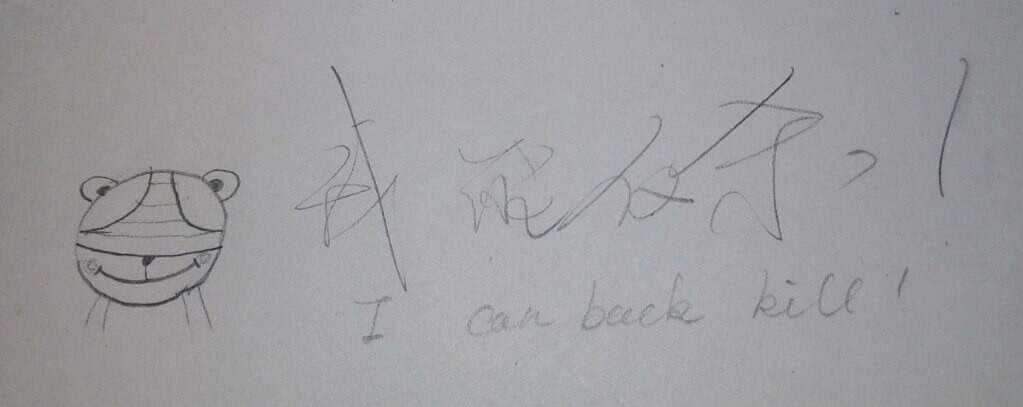 我能反杀!
I can back kill!